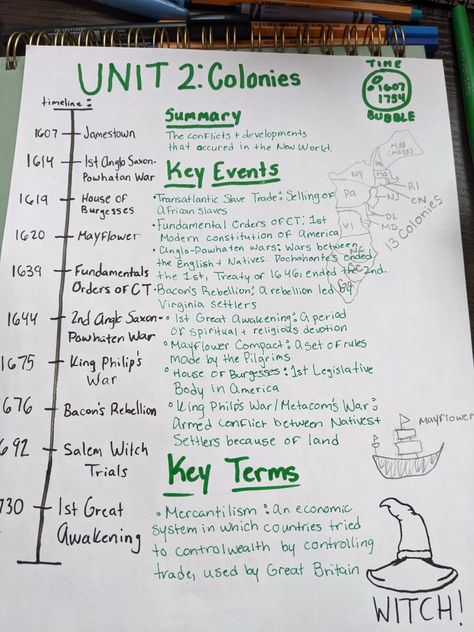 UNIT 2: Colonies
TIME
1607
1754
BUBBLE
timeline:
1607 Jamestown
1614 1st Anglo Saxon-
Powhatan War
1619 House of
Burgesses
1620 Mayflower
1639 Fundamentals
Orders of CT
1644 2nd Anglo Saxon-
Powhaten War
1675 King Philip's
War
676 Bacon's Rebellion
692 Salem Witch
Trials
730 1st Great
Awakening
Summary
The conflicts + developments
that occured in the New World.
Key Events
• Transatlantic Slave Trade: Selling of
African slaves
• Fundamental Orders of CT: 1st
Modern constitution of America
• Anglo-Powhaten Wars: Wars between
the English + Natives. Pochahontas ended
the 1st, Treaty of 1646, ended the 2nd.
• Bacon's Rebellion: a rebellion led by
Virginia settlers
• 1st Great Awakening: A period
of spiritual + religious devotion
• Mayflower Compact: A set of rules
made by the Pilgrims
• House of Burgesses: 1st Legislative
Body in America
• King Philp's War/Metacom's War:
Armed Conflict between Natives +
Settlers because of land
Key Terms
• Mercantilism: an economic
system in which countries tried
to control wealth by controlling
trade, used by Great Britain
(MASS)
NY
PA
RI
NJ
DL
MD
VI
13 Colonies
Mayflower
WITCH!